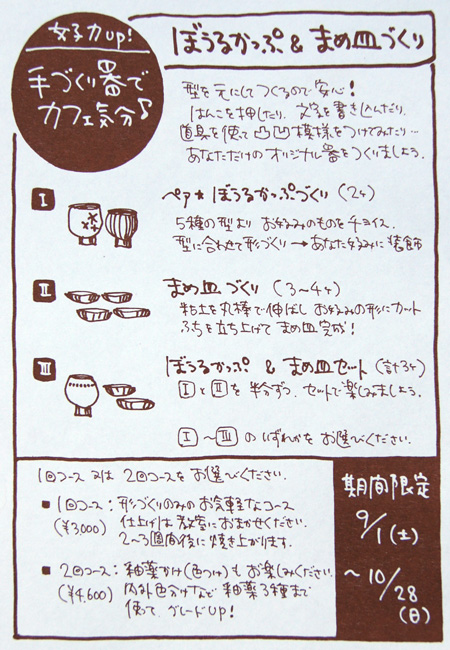 女子力up!
手づくり器で
カフェ気分♪
ぼうるかっぷ & まめ皿づくり
型を元にしてつくるので安心!
はんこを押したり、文字を書き込んだり、
道具を使って凸凹模様をつけてみたり…
あなただけのオリジナル器をつくりましょう。
I
ペア★ぼうるかっぷづくり (2ヶ)
5種の型より お好みのものをチョイス。
型に合わせて形づくり→あなた好みに装飾
II
まめ皿づくり (3〜4ヶ)
粘土を丸棒で伸ばし お好みの形にカット
ふちを立ち上げて まめ皿完成!
III
ぼうるかっぷ & まめ皿セット (計3ヶ)
IとIIを半分ずつ、セットで楽しみましょう。
I〜IIIのいずれかをお選びください。
1回コース 又は 2回コースをお選びください。
■ 1回コース:形づくりのみのお気軽なコース
(¥3,000) 仕上げは教室におまかせください。
2〜3週間後に焼き上がります。
■ 2回コース:釉薬かけ(色つけ)もお楽しみください。
(¥4,600) 内外色分けなど 釉薬3種まで
使って、グレードUP!
期間限定
9/1(土)
〜10/28
(日)